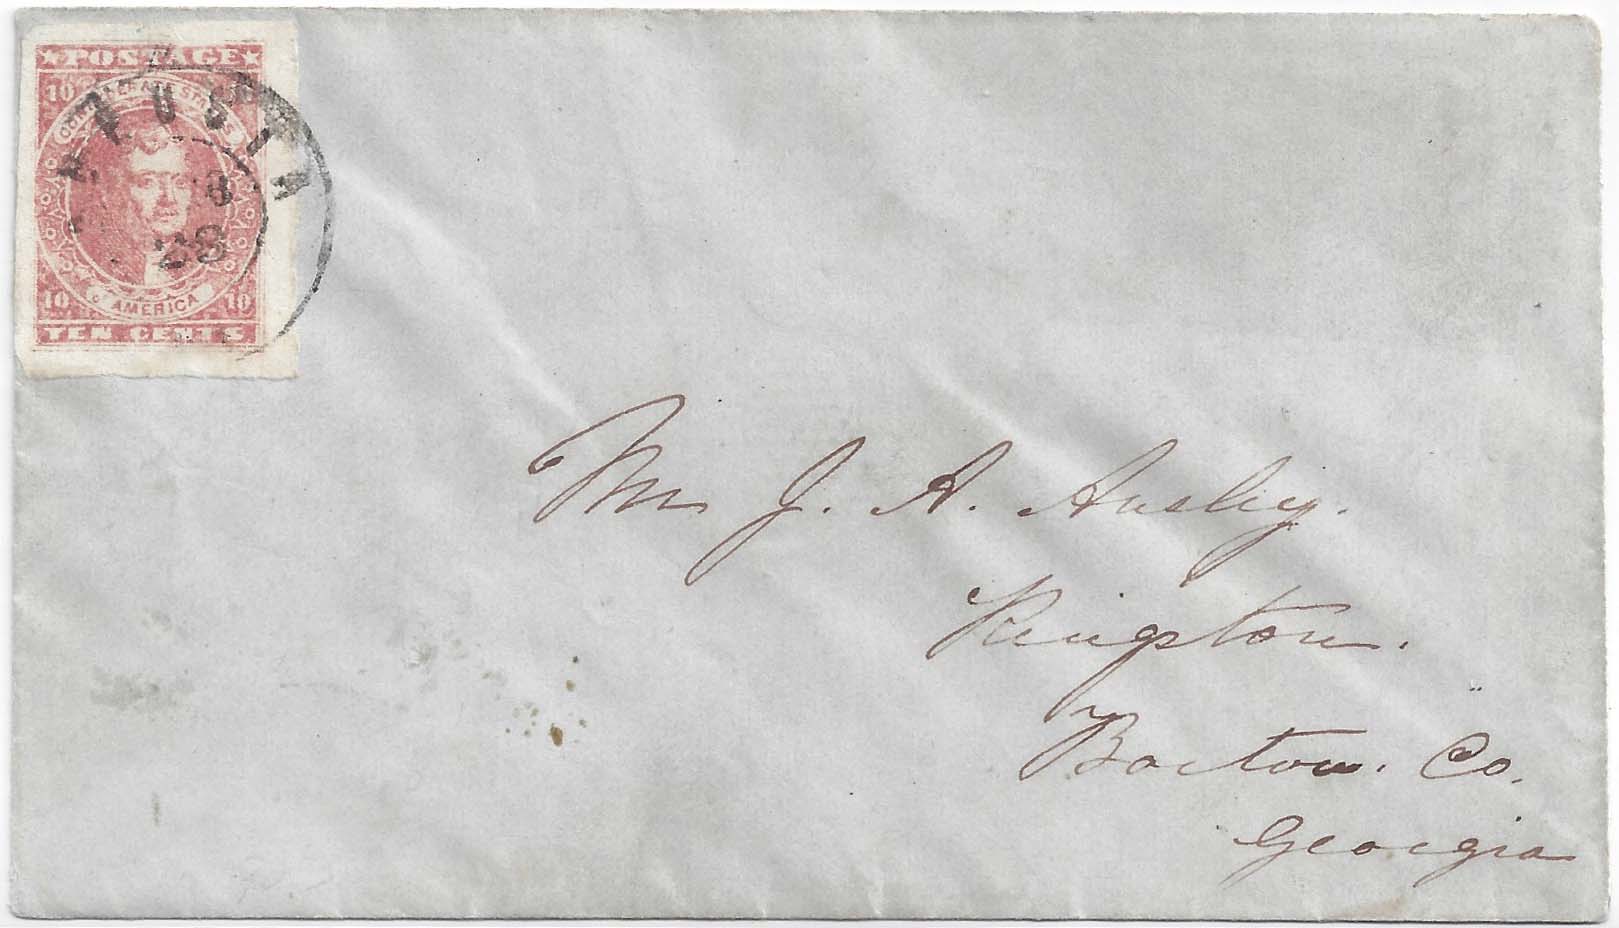 ★POSTAGE★
10
CONFEDERATE STATES
AUGUSTA
28
OF AMERICA
10 10
TEN CENTS
Mr J. A. Ansley.
Kingston.
Bartow. Co.
Georgia